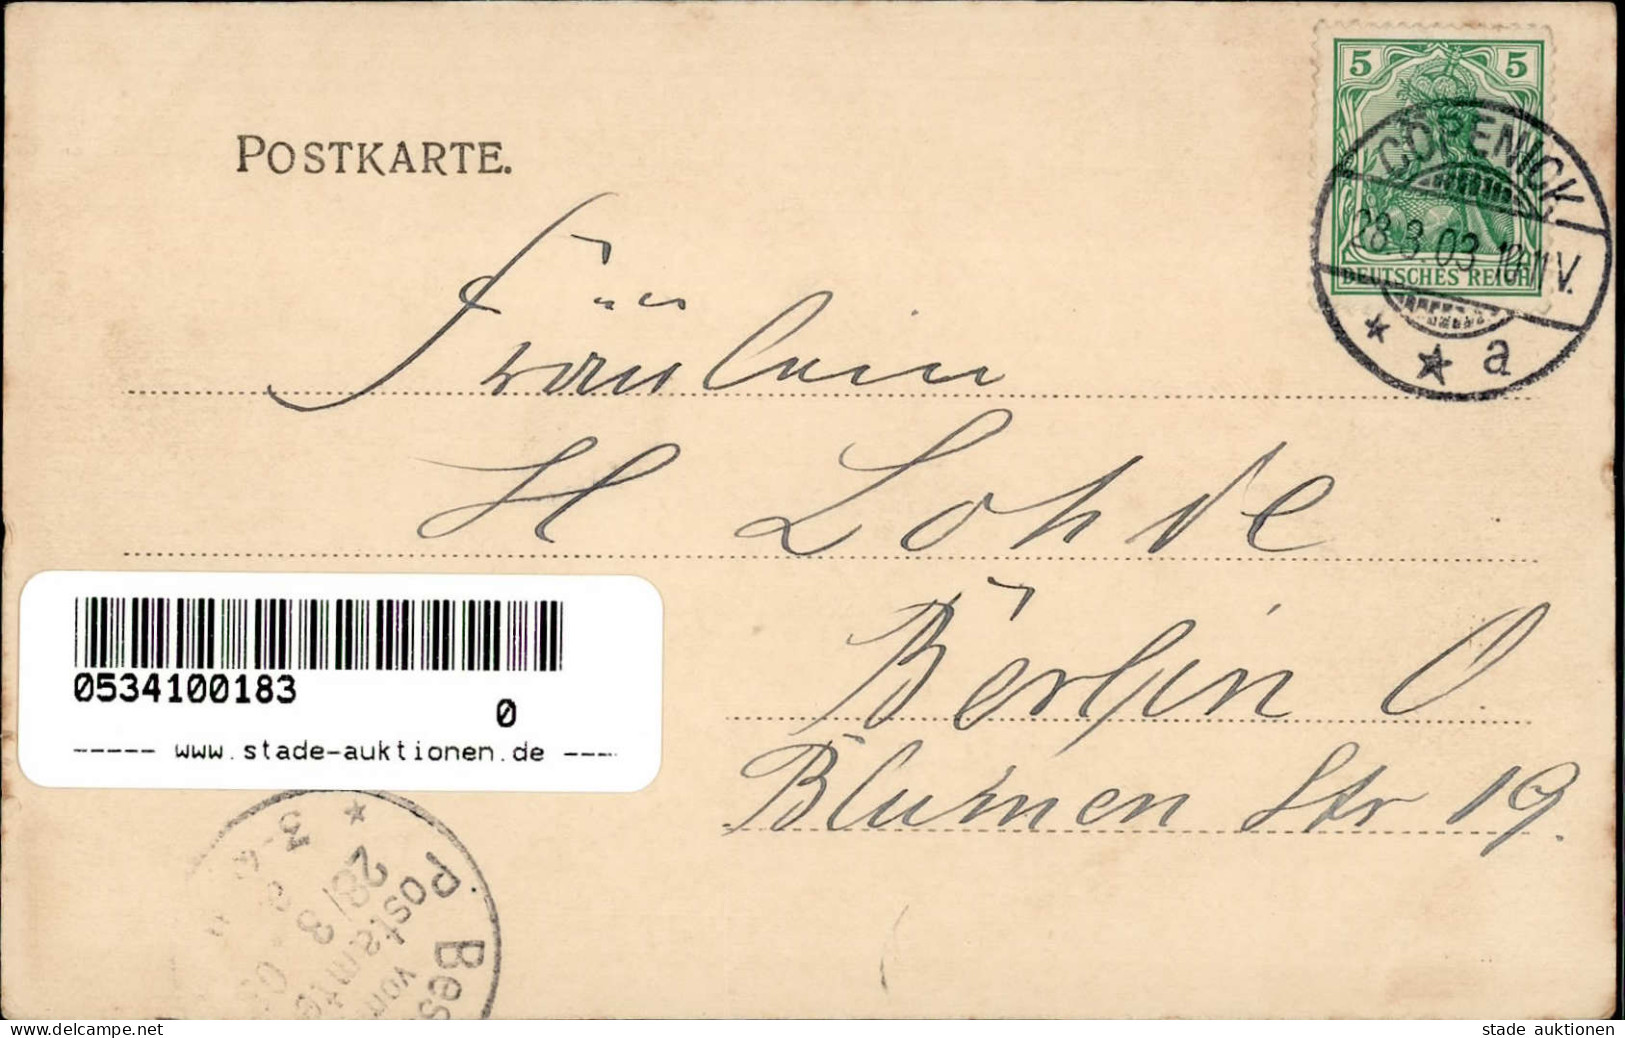 POSTKARTE.
5 5
DEUTSCHES REICH
CÖPENICK
28.3.03.10-11V.
* * a
Fräulein
H Lohde
Berlin O.
Blumen Str 19.
0534100183
0
----- www.stade-auktionen.de ----
Bes
P
Postamte
vom
28/3
3-4
delcampe.net
stade auktionen